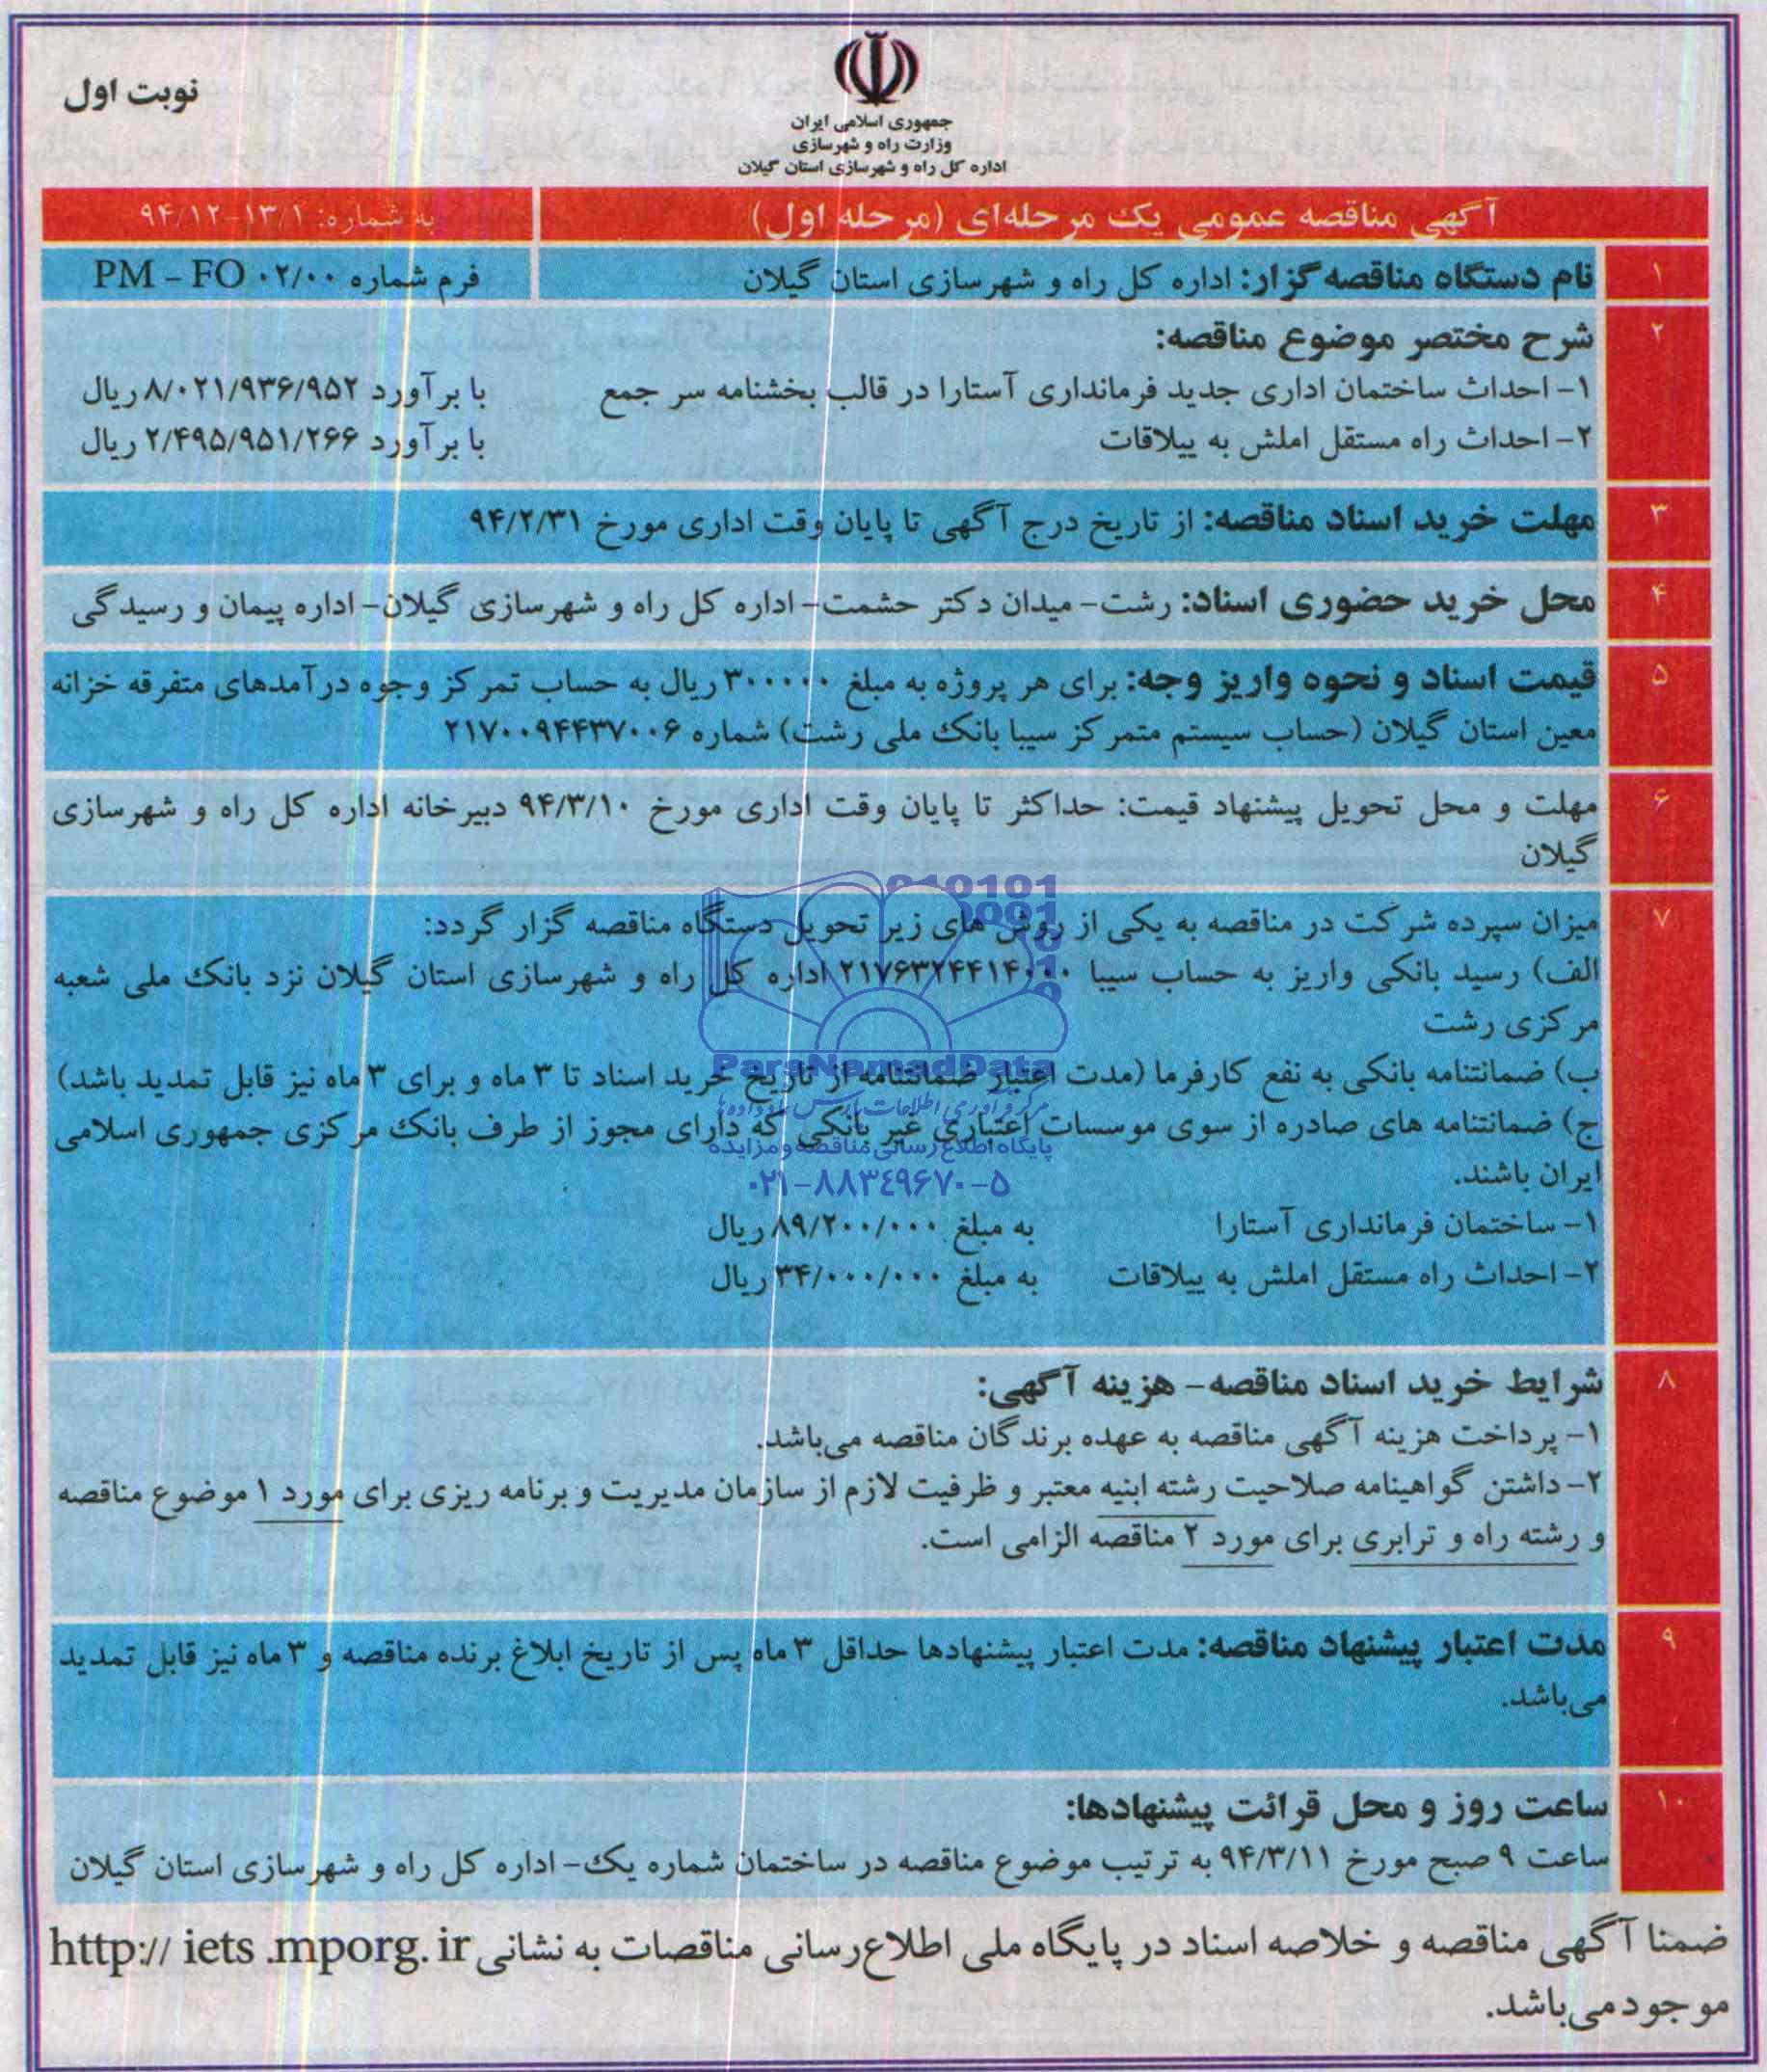 نوبت اول
جمهوری اسلامی ایران
وزارت راه و شهرسازی
اداره کل راه و شهرسازی استان گیلان
آگهی مناقصه عمومی یک مرحله‌ای (مرحله اول)
به شماره: ۱۳/۱-۹۴/۱۲
۱
نام دستگاه مناقصه گزار: اداره کل راه و شهرسازی استان گیلان
فرم شماره PM - FO ۰۲/۰۰
۲
شرح مختصر موضوع مناقصه:
۱- احداث ساختمان اداری جدید فرمانداری آستارا در قالب بخشنامه سر جمع با برآورد ۸/۰۲۱/۹۳۶/۹۵۲ ریال
۲- احداث راه مستقل املش به ییلاقات با برآورد ۲/۴۹۵/۹۵۱/۲۶۶ ریال
۳
مهلت خرید اسناد مناقصه: از تاریخ درج آگهی تا پایان وقت اداری مورخ ۹۴/۲/۳۱
۴
محل خرید حضوری اسناد: رشت- میدان دکتر حشمت- اداره کل راه و شهرسازی گیلان- اداره پیمان و رسیدگی
۵
قیمت اسناد و نحوه واریز وجه: برای هر پروژه به مبلغ ۳۰۰۰۰۰ ریال به حساب تمرکز وجوه درآمدهای متفرقه خزانه
معین استان گیلان (حساب سیستم متمرکز سیبا بانک ملی رشت) شماره ۲۱۷۰۰۹۴۴۳۷۰۰۶
۶
مهلت و محل تحویل پیشنهاد قیمت: حداکثر تا پایان وقت اداری مورخ ۹۴/۳/۱۰ دبیرخانه اداره کل راه و شهرسازی
گیلان
۷
میزان سپرده شرکت در مناقصه به یکی از روش های زیر تحویل دستگاه مناقصه گزار گردد:
الف) رسید بانکی واریز به حساب سیبا ۲۱۷۶۳۲۴۴۱۴۰۰۰ اداره کل راه و شهرسازی استان گیلان نزد بانک ملی شعبه
مرکزی رشت
ب) ضمانتنامه بانکی به نفع کارفرما (مدت اعتبار ضمانتنامه از تاریخ خرید اسناد تا ۳ ماه و برای ۳ ماه نیز قابل تمدید باشد)
ج) ضمانتنامه های صادره از سوی موسسات اعتباری غیر بانکی که دارای مجوز از طرف بانک مرکزی جمهوری اسلامی
ایران باشند.
۱- ساختمان فرمانداری آستارا به مبلغ ۸۹/۲۰۰/۰۰۰ ریال
۲- احداث راه مستقل املش به ییلاقات به مبلغ ۳۴/۰۰۰/۰۰۰ ریال
ParsNamadData
مرکز فرآوری اطلاعات پارس نماد داده ها
پایگاه اطلاع رسانی مناقصه و مزایده
۰۲۱-۸۸۳۴۹۶۷۰-۵
۸
شرایط خرید اسناد مناقصه- هزینه آگهی:
۱- پرداخت هزینه آگهی مناقصه به عهده برندگان مناقصه می‌باشد.
۲- داشتن گواهینامه صلاحیت رشته ابنیه معتبر و ظرفیت لازم از سازمان مدیریت و برنامه ریزی برای مورد ۱ موضوع مناقصه
و رشته راه و ترابری برای مورد ۲ مناقصه الزامی است.
۹
مدت اعتبار پیشنهاد مناقصه: مدت اعتبار پیشنهادها حداقل ۳ ماه پس از تاریخ ابلاغ برنده مناقصه و ۳ ماه نیز قابل تمدید
می‌باشد.
۱۰
ساعت روز و محل قرائت پیشنهادها:
ساعت ۹ صبح مورخ ۹۴/۳/۱۱ به ترتیب موضوع مناقصه در ساختمان شماره یک- اداره کل راه و شهرسازی استان گیلان
ضمنا آگهی مناقصه و خلاصه اسناد در پایگاه ملی اطلاع‌رسانی مناقصات به نشانی http:// iets .mporg. ir
موجود می‌باشد.